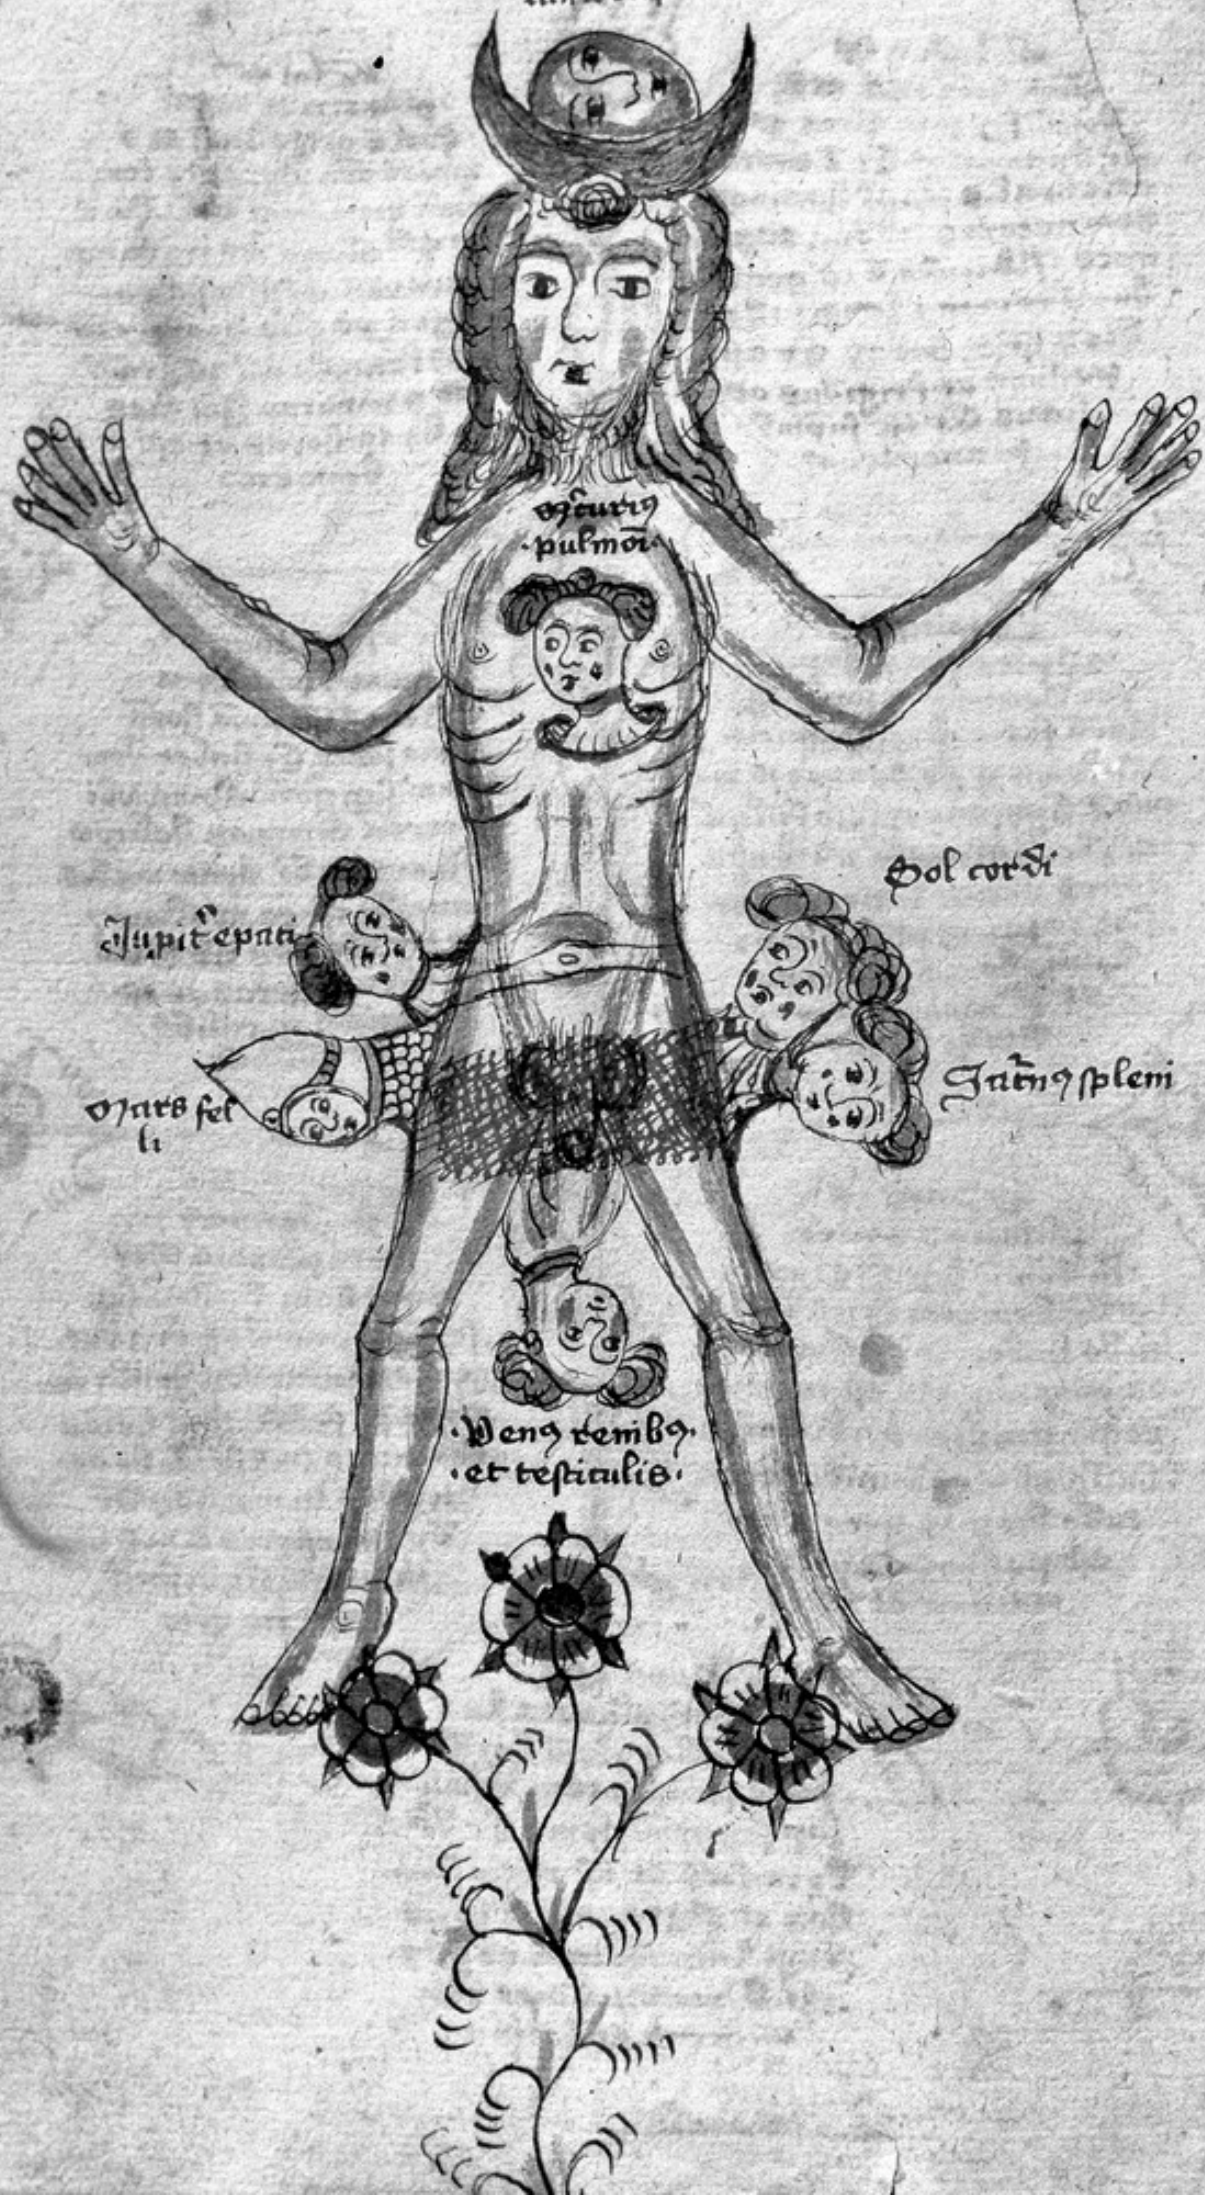 Mercurius
·pulmoni·
Sol cordi
Jupiter epati
Saturnus spleni
Mars fel
li
·Venus renibus·
·et testiculis·